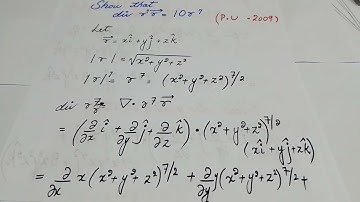 Show that
div r⁷r⃗ = 10r⁷ (P.U - 2009)
Let
r⃗ = xî + yĵ + zk̂
|r| = √x² + y² + z²
|r|⁷ = r⁷ = (x² + y² + z²)^7/2
div r⁷r⃗ ∇ · r⁷ r⃗
= (∂/∂x î + ∂/∂y ĵ + ∂/∂z k̂) · (x² + y² + z²)^7/2
(xî + yĵ + zk̂)
= ∂/∂x x(x² + y² + z²)^7/2 + ∂/∂y y(x² + y² + z²)^7/2 +